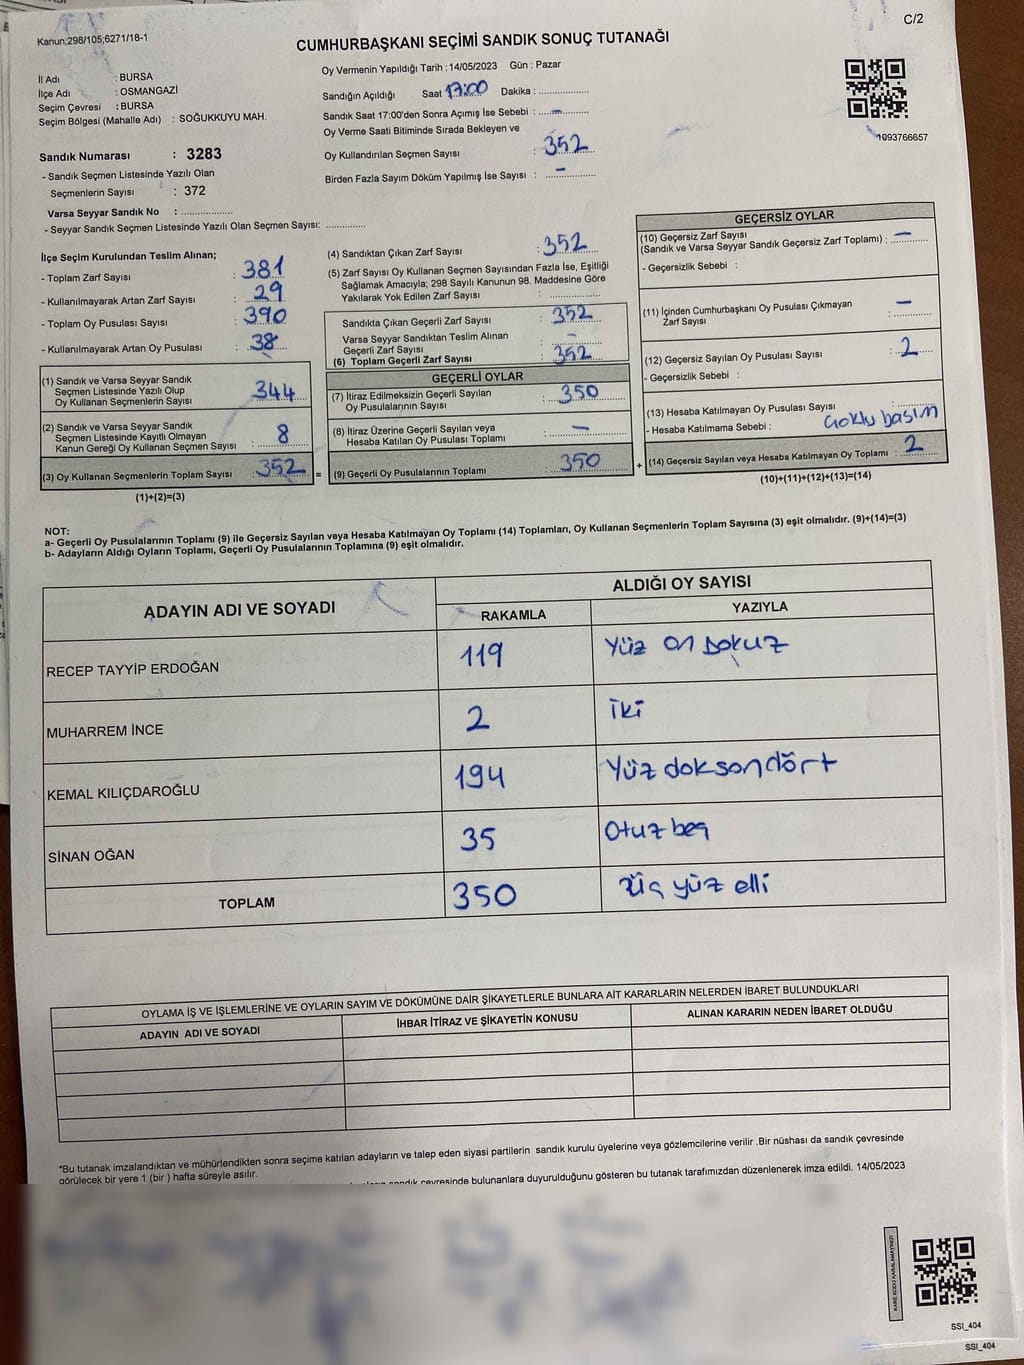 C/2
Kanun;298/105;6271/18-1
CUMHURBAŞKANI SEÇİMİ SANDIK SONUÇ TUTANAĞI
İl Adı : BURSA
İlçe Adı : OSMANGAZİ
Seçim Çevresi : BURSA
Seçim Bölgesi (Mahalle Adı) : SOĞUKKUYU MAH.
Sandık Numarası : 3283
- Sandık Seçmen Listesinde Yazılı Olan
Seçmenlerin Sayısı : 372
Varsa Seyyar Sandık No : ..................
- Seyyar Sandık Seçmen Listesinde Yazılı Olan Seçmen Sayısı: ..............
Oy Vermenin Yapıldığı Tarih : 14/05/2023 Gün : Pazar
Sandığın Açıldığı Saat 17:00 Dakika : ..................
Sandık Saat 17:00'den Sonra Açımış İse Sebebi : –
Oy Verme Saati Bitiminde Sırada Bekleyen ve
Oy Kullandırılan Seçmen Sayısı : 352
Birden Fazla Sayım Döküm Yapılmış İse Sayısı : –
1093766657
İlçe Seçim Kurulundan Teslim Alınan;
- Toplam Zarf Sayısı : 381
- Kullanılmayarak Artan Zarf Sayısı : 29
- Toplam Oy Pusulası Sayısı : 390
- Kullanılmayarak Artan Oy Pusulası : 38
(1) Sandık ve Varsa Seyyar Sandık
Seçmen Listesinde Yazılı Olup
Oy Kullanan Seçmenlerin Sayısı : 344
(2) Sandık ve Varsa Seyyar Sandık
Seçmen Listesinde Kayıtlı Olmayan
Kanun Gereği Oy Kullanan Seçmen Sayısı : 8
(3) Oy Kullanan Seçmenlerin Toplam Sayısı : 352 =
(1)+(2)=(3)
(4) Sandıktan Çıkan Zarf Sayısı : 352
(5) Zarf Sayısı Oy Kullanan Seçmen Sayısından Fazla İse, Eşitliği
Sağlamak Amacıyla; 298 Sayılı Kanunun 98. Maddesine Göre
Yakılarak Yok Edilen Zarf Sayısı : ..................
Sandıkta Çıkan Geçerli Zarf Sayısı : 352
Varsa Seyyar Sandıktan Teslim Alınan
Geçerli Zarf Sayısı : –
(6) Toplam Geçerli Zarf Sayısı : 352
GEÇERLİ OYLAR
(7) İtiraz Edilmeksizin Geçerli Sayılan
Oy Pusulalarının Sayısı : 350
(8) İtiraz Üzerine Geçerli Sayılan veya
Hesaba Katılan Oy Pusulası Toplamı : –
(9) Geçerli Oy Pusulalarının Toplamı : 350 +
GEÇERSİZ OYLAR
(10) Geçersiz Zarf Sayısı
(Sandık ve Varsa Seyyar Sandık Geçersiz Zarf Toplamı) : –
- Geçersizlik Sebebi :
(11) İçinden Cumhurbaşkanı Oy Pusulası Çıkmayan
Zarf Sayısı : –
(12) Geçersiz Sayılan Oy Pusulası Sayısı : 2
- Geçersizlik Sebebi :
(13) Hesaba Katılmayan Oy Pusulası Sayısı : ..............
- Hesaba Katılmama Sebebi : Çoklu basım
(14) Geçersiz Sayılan veya Hesaba Katılmayan Oy Toplamı : 2
(10)+(11)+(12)+(13)=(14)
NOT:
a- Geçerli Oy Pusulalarının Toplamı (9) ile Geçersiz Sayılan veya Hesaba Katılmayan Oy Toplamı (14) Toplamları, Oy Kullanan Seçmenlerin Toplam Sayısına (3) eşit olmalıdır. (9)+(14)=(3)
b- Adayların Aldığı Oyların Toplamı, Geçerli Oy Pusulalarının Toplamına (9) eşit olmalıdır.
ADAYIN ADI VE SOYADI
ALDIĞI OY SAYISI
RAKAMLA YAZIYLA
RECEP TAYYİP ERDOĞAN 119 Yüz on Dokuz
MUHARREM İNCE 2 iki
KEMAL KILIÇDAROĞLU 194 Yüz doksan dört
SİNAN OĞAN 35 Otuz beş
TOPLAM 350 Üç yüz elli
OYLAMA İŞ VE İŞLEMLERİNE VE OYLARIN SAYIM VE DÖKÜMÜNE DAİR ŞİKAYETLERLE BUNLARA AİT KARARLARIN NELERDEN İBARET BULUNDUKLARI
ADAYIN ADI VE SOYADI İHBAR İTİRAZ VE ŞİKAYETİN KONUSU ALINAN KARARIN NEDEN İBARET OLDUĞU
*Bu tutanak imzalandıktan ve mühürlendikten sonra seçime katılan adayların ve talep eden siyasi partilerin sandık kurulu üyelerine veya gözlemcilerine verilir .Bir nüshası da sandık çevresinde
görülecek bir yere 1 (bir ) hafta süreyle asılır.
sandık çevresinde bulunanlara duyurulduğunu gösteren bu tutanak tarafımızdan düzenlenerek imza edildi. 14/05/2023
KARE KODU KARALAMAYINIZ!
SSI_404
SSI_404